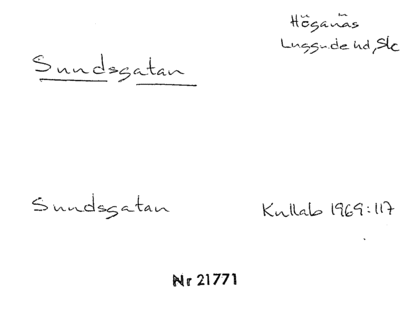 Höganäs
Luggude hd, Sk
Sundsgatan
Sundsgatan
Kullab 1969:117
Nr 21771